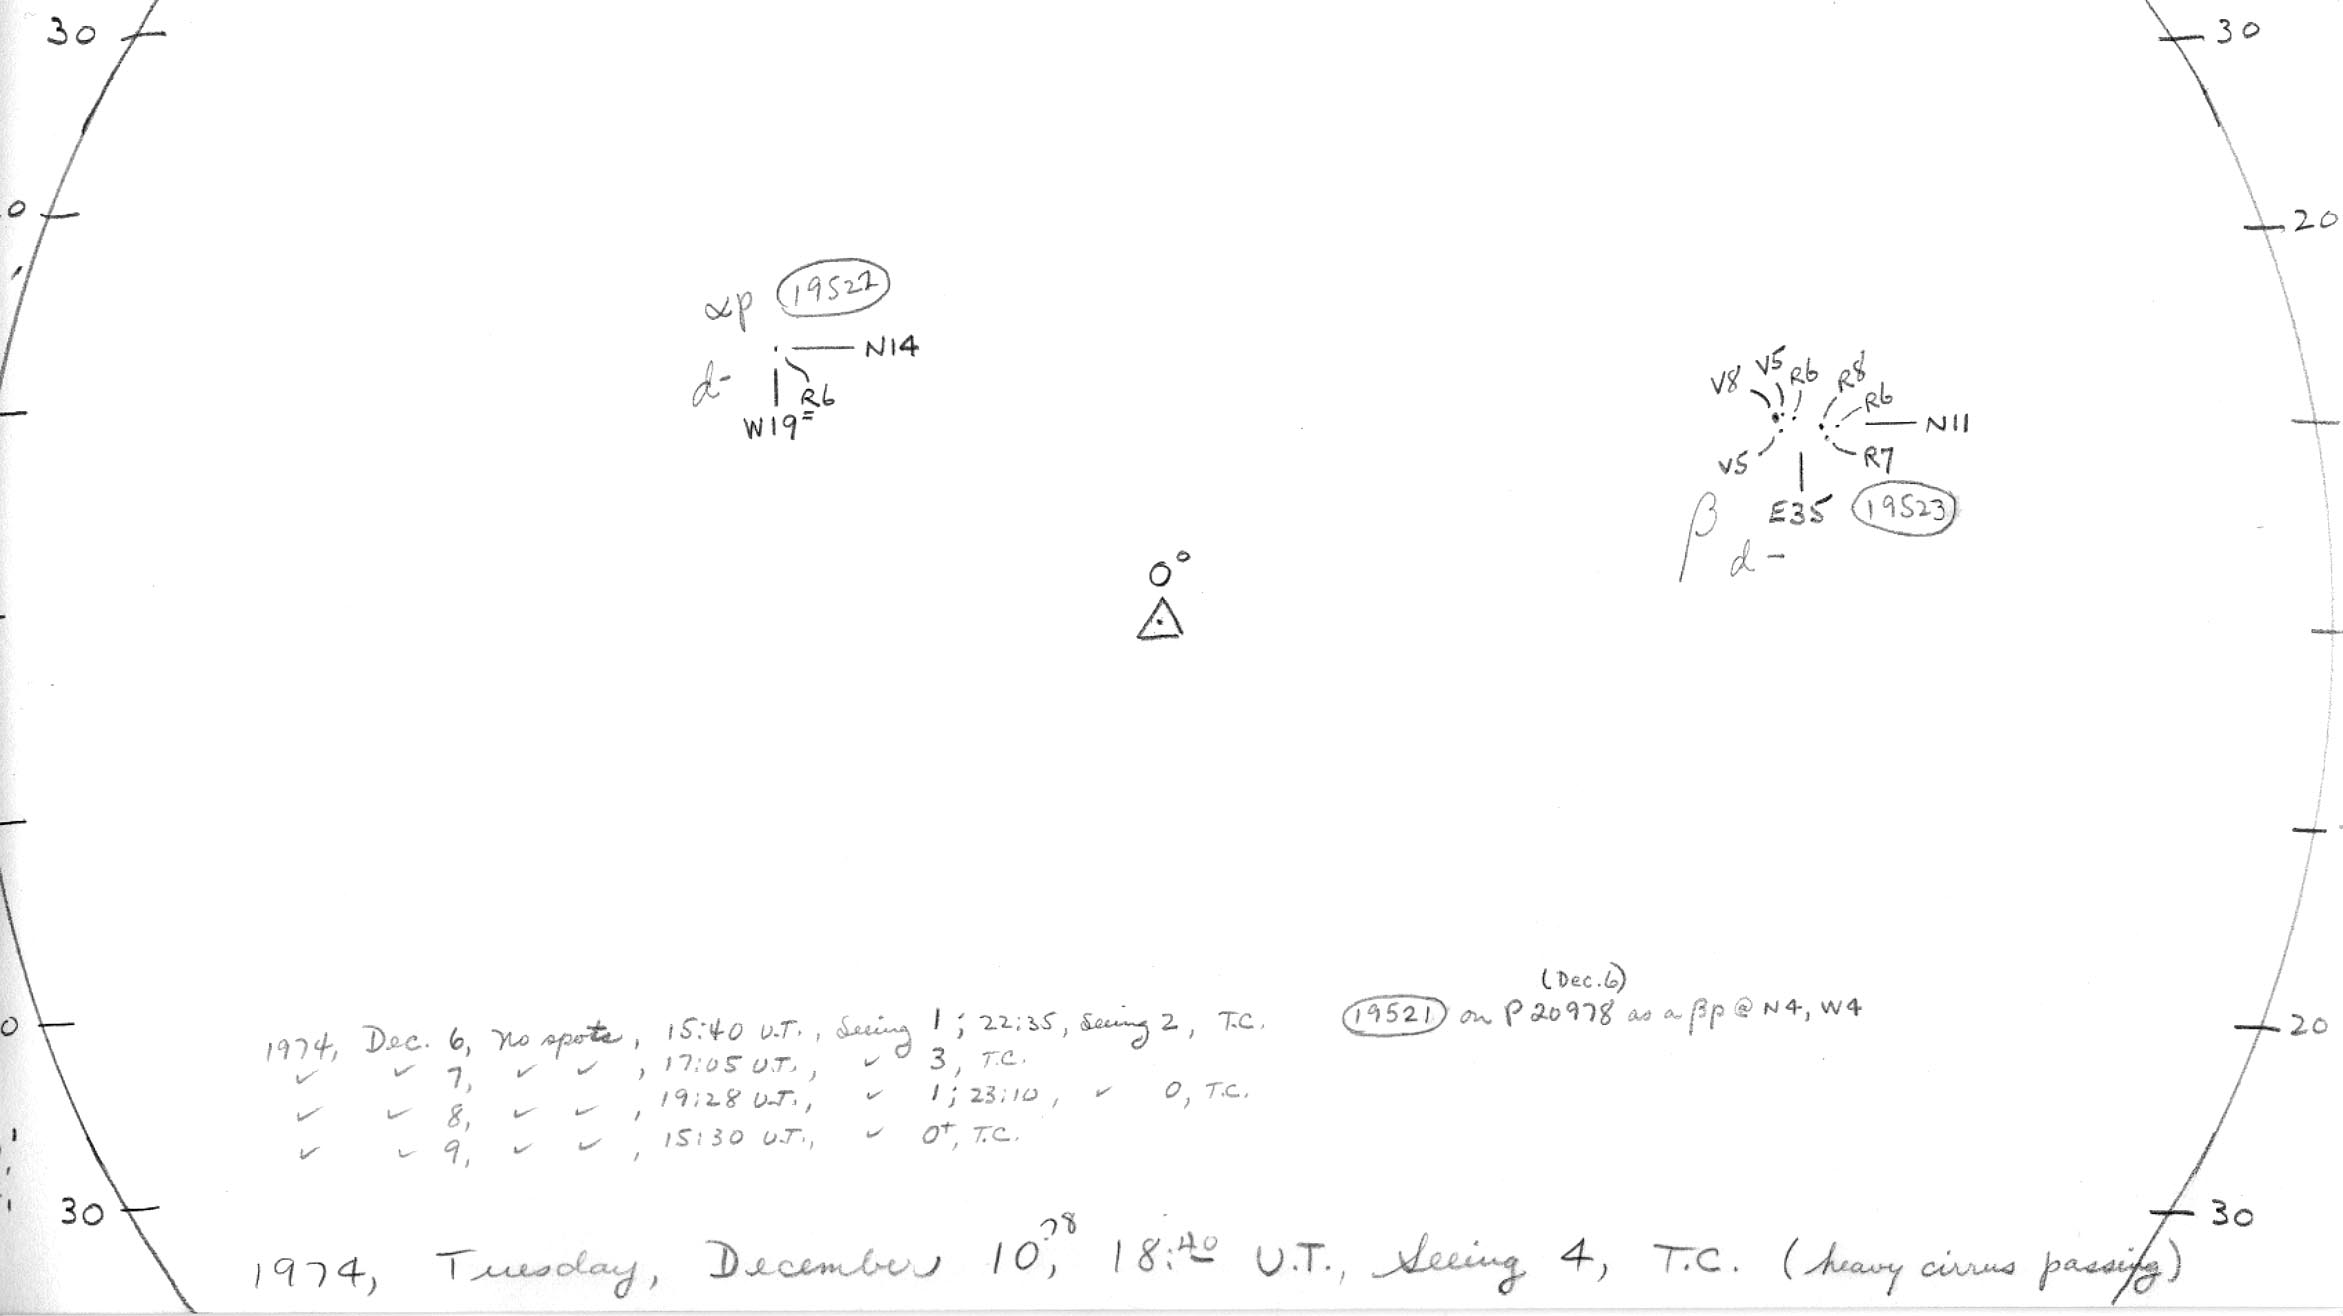 30 30
0 20
αp 19522
N14
d- R6
W19=
V8 V5 R6 R8
R6
N11
V5 R7
E35 19523
β d -
0°
(Dec.6)
1974, Dec. 6, no spots, 15:40 U.T., Seeing 1; 22:35, Seeing 2, T.C. 19521 on P 20978 as a βp @ N4, W4
✓ ✓ 7, ✓ ✓, 17:05 U.T., ✓ 3, T.C.
✓ ✓ 8, ✓ ✓, 19:28 U.T., ✓ 1; 23:10, ✓ 0, T.C.
✓ ✓ 9, ✓ ✓, 15:30 U.T., ✓ 0+, T.C.
0 20
30 30
1974, Tuesday, December 10.78, 18:40 U.T., Seeing 4, T.C. (heavy cirrus passing)